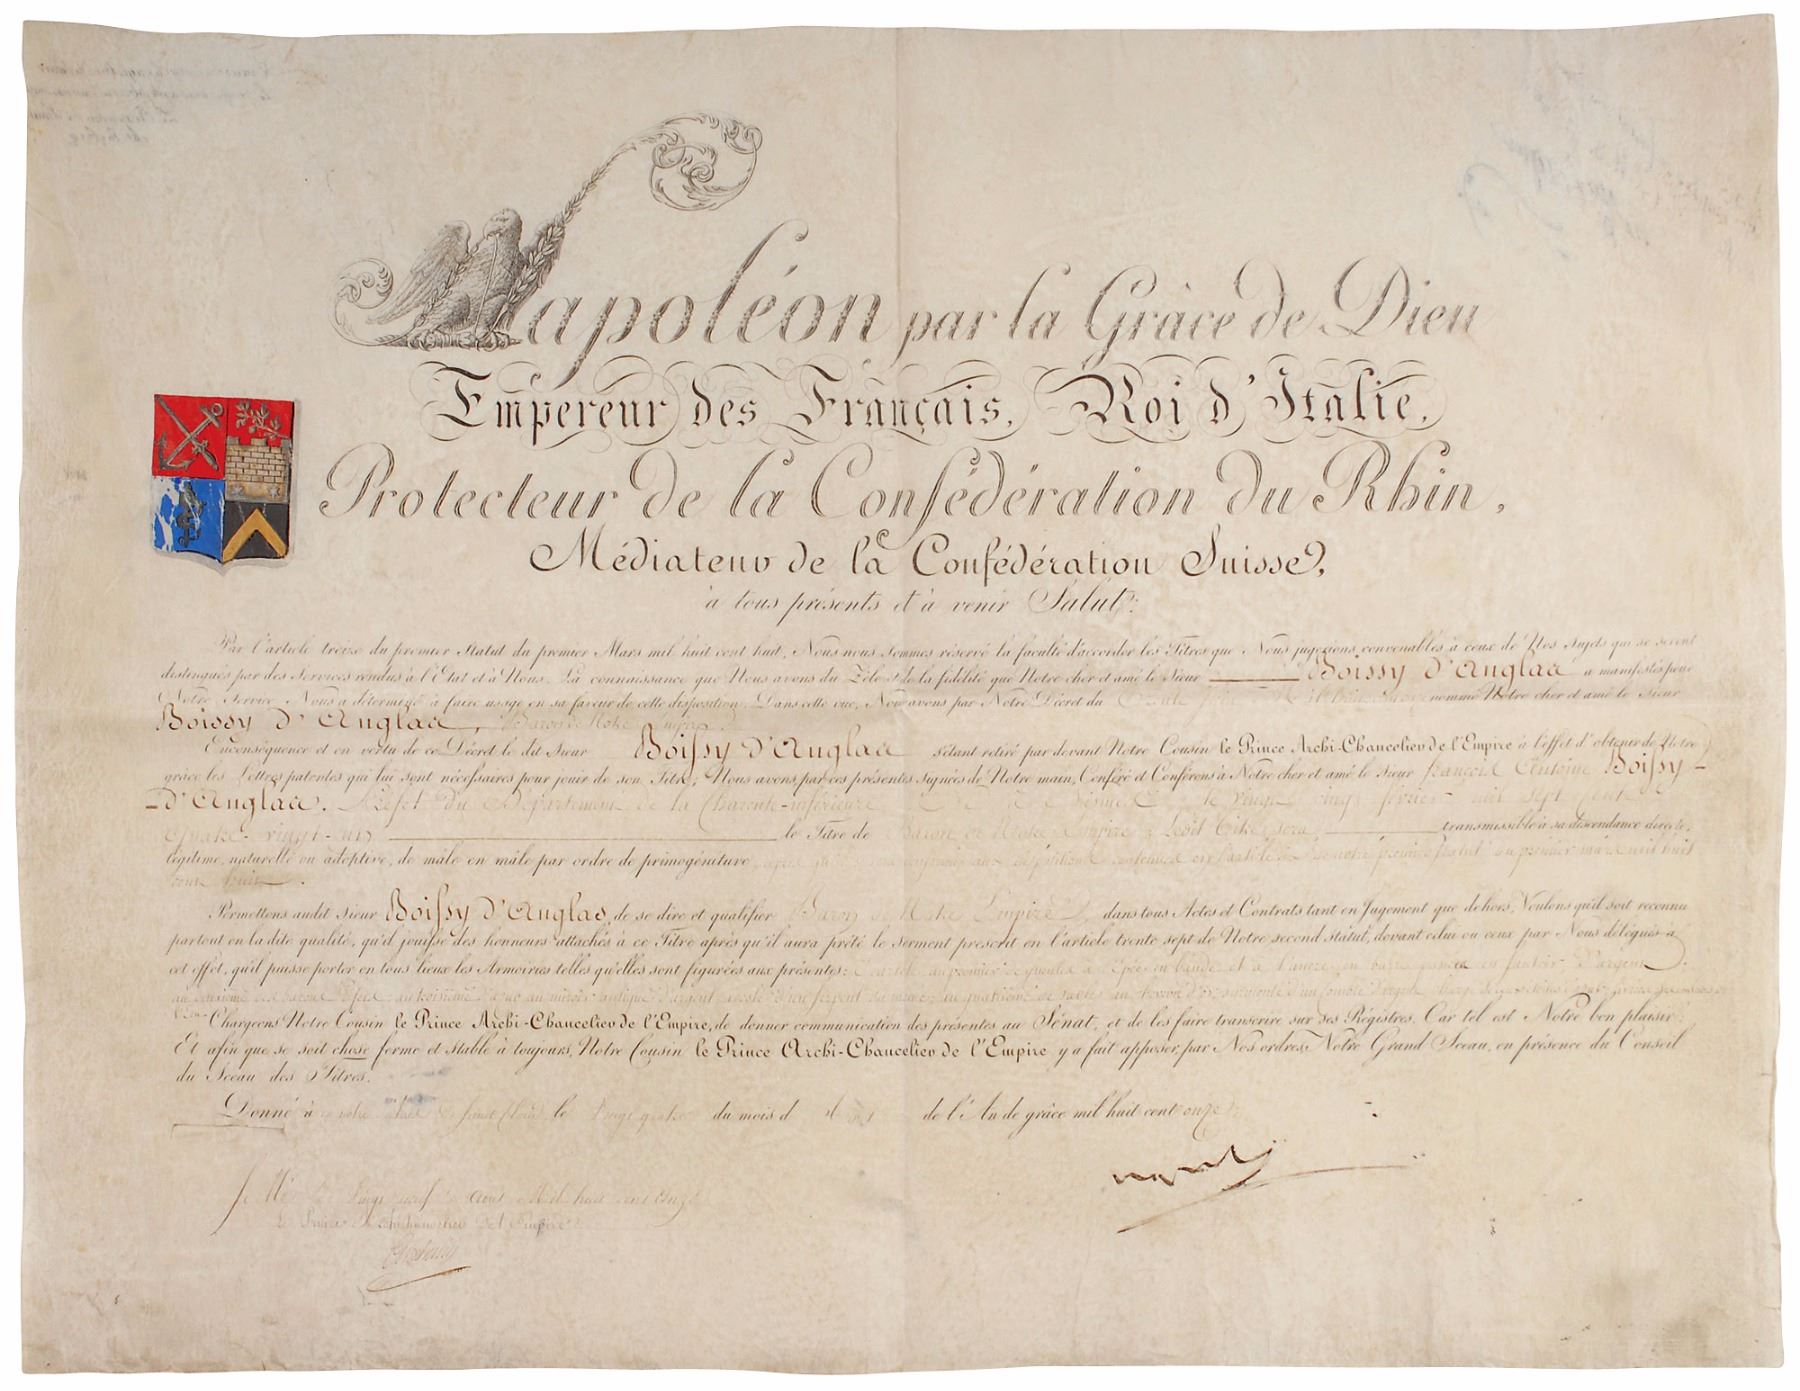 Napoléon par la Grâce de Dieu
Empereur des Français, Roi d'Italie,
Protecteur de la Confédération du Rhin,
Médiateur de la Confédération Suisse,
à tous présents et à venir Salut:
Par l'article treize du premier Statut du premier Mars mil huit cent huit, Nous nous sommes réservé la faculté d'accorder les Titres que Nous jugerions convenables à ceux de Nos Sujets qui se seront
distingués par des Services rendus à l'État et à Nous. La connaissance que Nous avons du Zèle et de la fidélité que Notre cher et amé le Sieur Boissy d'Anglas a manifestés pour
Notre Service, Nous a déterminé à faire usage en sa faveur de cette disposition. Dans cette vue, Nous avons par Notre Décret du nommé Notre cher et amé le Sieur
Boissy d'Anglas, Baron de Notre Empire.
En conséquence et en vertu de ce Décret le dit Sieur Boissy d'Anglas s'étant retiré par devant Notre Cousin le Prince Archi-Chancelier de l'Empire à l'effet d'obtenir de Notre
grâce les Lettres patentes qui lui sont nécessaires pour jouir de son Titre, Nous avons par ces présentes signées de Notre main, Conféré et Conférons à Notre cher et amé le Sieur françois Antoine Boissy-
-d'Anglas. Préfet du Département de la Charente-inférieure le vingt cinq février mil sept cent
quatre-vingt-un le Titre de Baron de Notre Empire; Ledit Titre sera transmissible à sa descendance directe,
légitime, naturelle ou adoptive, de mâle en mâle par ordre de primogéniture aux dispositions contenues en l'article de notre premier statut du premier mars mil huit
cent huit.
Permettons audit Sieur Boissy d'Anglas, de se dire et qualifier Baron de Notre Empire dans tous Actes et Contrats tant en Jugement que dehors, Voulons qu'il soit reconnu
partout en la dite qualité, qu'il jouisse des honneurs attachés à ce Titre après qu'il aura prêté le serment prescrit en l'article trente sept de Notre second statut, devant celui ou ceux par Nous délégués à
cet effet, qu'il puisse porter en tous lieux les Armoiries telles qu'elles sont figurées aux présentes: Ecartelé au premier de gueules à l'Epée en bande et à l'ancre en barre passés en sautoir d'argent;
au deuxième des barons Préfets; au troisième d'azur au miroir antique d'argent, accolé d'un serpent du même; au quatrième de sable au chevron d'or, surmonté d'un comble d'argent chargé de
Chargeons Notre Cousin le Prince Archi-Chancelier de l'Empire, de donner communication des présentes au Sénat, et de les faire transcrire sur ses Régistres. Car tel est Notre bon plaisir:
Et afin que ce soit chose ferme et stable à toujours, Notre Cousin le Prince Archi-Chancelier de l'Empire y a fait apposer, par Nos ordres, Notre Grand Sceau, en présence du Conseil
du Sceau des Titres.
Donné à notre Palais de Saint Cloud le vingt quatre du mois d' août de l'An de grâce mil huit cent onze
Scellé le vingt neuf août Mil huit cent onze
Le Prince Archichancelier de l'Empire